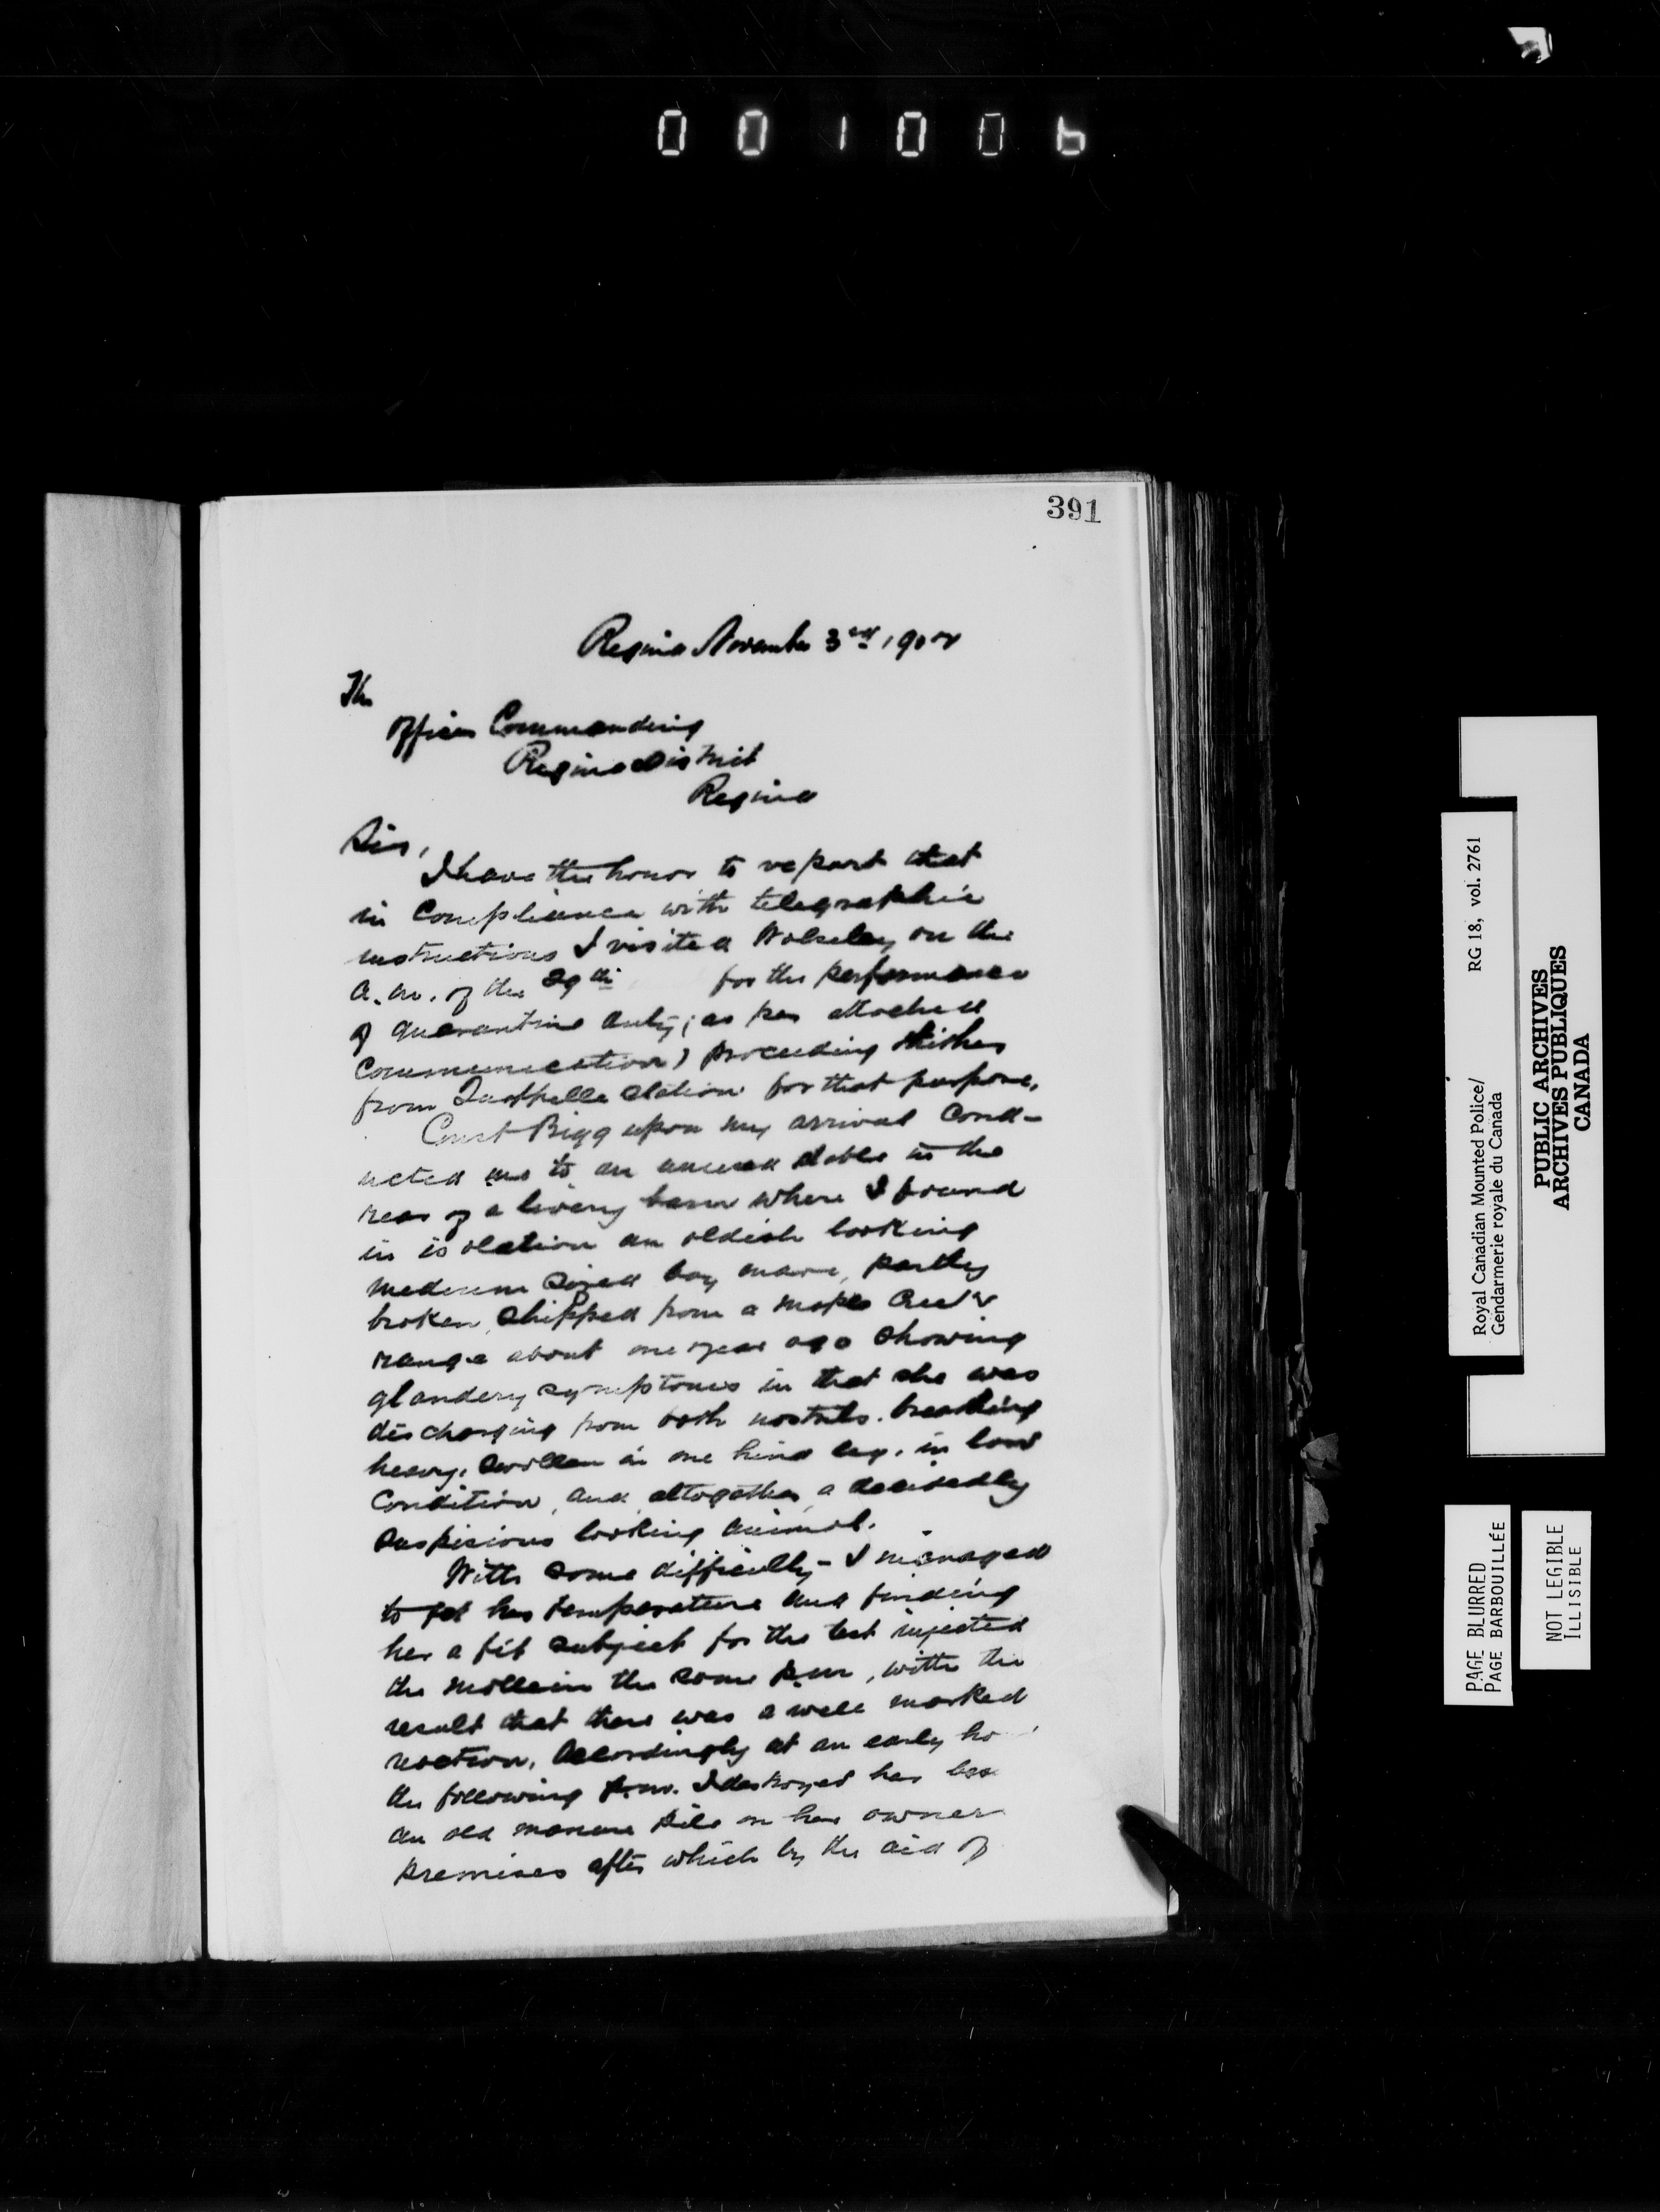 001006
391
Regina November 3rd 190
The
Officer Commanding
Regina District
Regina
Sir,
I have the honor to report that
in compliance with telegraphic
instructions I visited Wolseley on the
a.m. of the 29th for the performance
of quarantine duty; as per attached
communication) proceeding thither
from Qu'Appelle station for that purpose.
Const Bigg upon my arrival cond-
ucted me to an unused stable in the
rear of a livery barn where I found
in isolation an oldish looking
medium sized bay mare, partly
broken, shipped from a Maple Creek
range about one year ago showing
glandery symptoms in that she was
discharging from both nostrils. breathing
heavy, swollen in one hind leg, in low
condition, and altogether a decidedly
suspicious looking animal.
With some difficulty - I managed
to get her temperature and finding
her a fit subject for the test injected
the mallein the same p.m., with the
result that there was a well marked
reaction. Accordingly at an early ho
the following p.m. I destroyed her
an old manure pile on her owner
premises after which by the aid of
Royal Canadian Mounted Police/ RG 18, vol. 2761
Gendarmerie royale du Canada
PUBLIC ARCHIVES
ARCHIVES PUBLIQUES
CANADA
PAGE BLURRED
PAGE BARBOUILLÉE
NOT LEGIBLE
ILLISIBLE